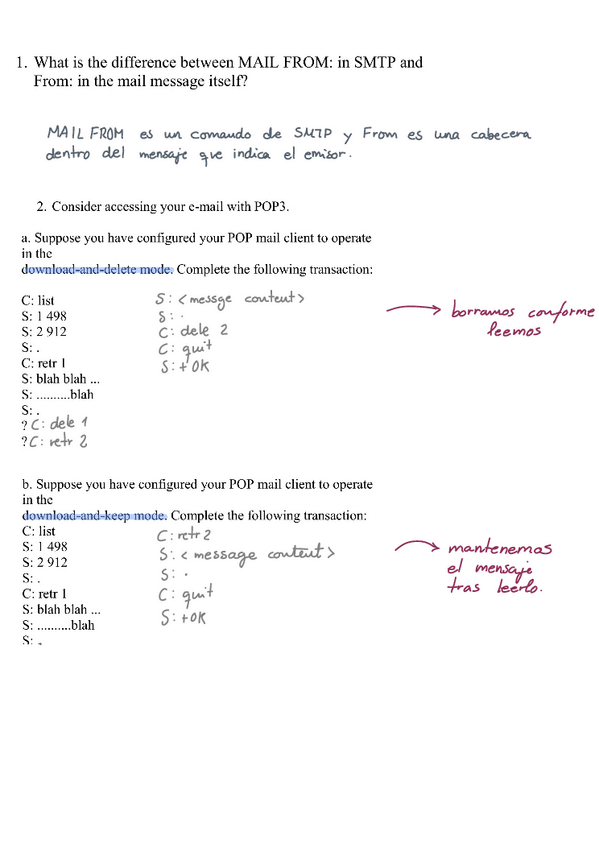 1. What is the difference between MAIL FROM: in SMTP and
From: in the mail message itself?
MAIL FROM es un comando de SMTP y From es una cabecera
dentro del mensaje que indica el emisor.
2. Consider accessing your e-mail with POP3.
a. Suppose you have configured your POP mail client to operate
in the
download-and-delete mode. Complete the following transaction:
C: list
S: 1 498
S: 2 912
S: .
C: retr 1
S: blah blah ...
S: ..........blah
S: .
? C: dele 1
? C: retr 2
S: <messge content>
S: .
C: dele 2
C: quit
S: +OK
→ borramos conforme
leemos
b. Suppose you have configured your POP mail client to operate
in the
download-and-keep mode. Complete the following transaction:
C: list
S: 1 498
S: 2 912
S: .
C: retr 1
S: blah blah ...
S: ..........blah
S: .
C: retr 2
S: <message content>
S: .
C: quit
S: +OK
→ mantenemos
el mensaje
tras leerlo.